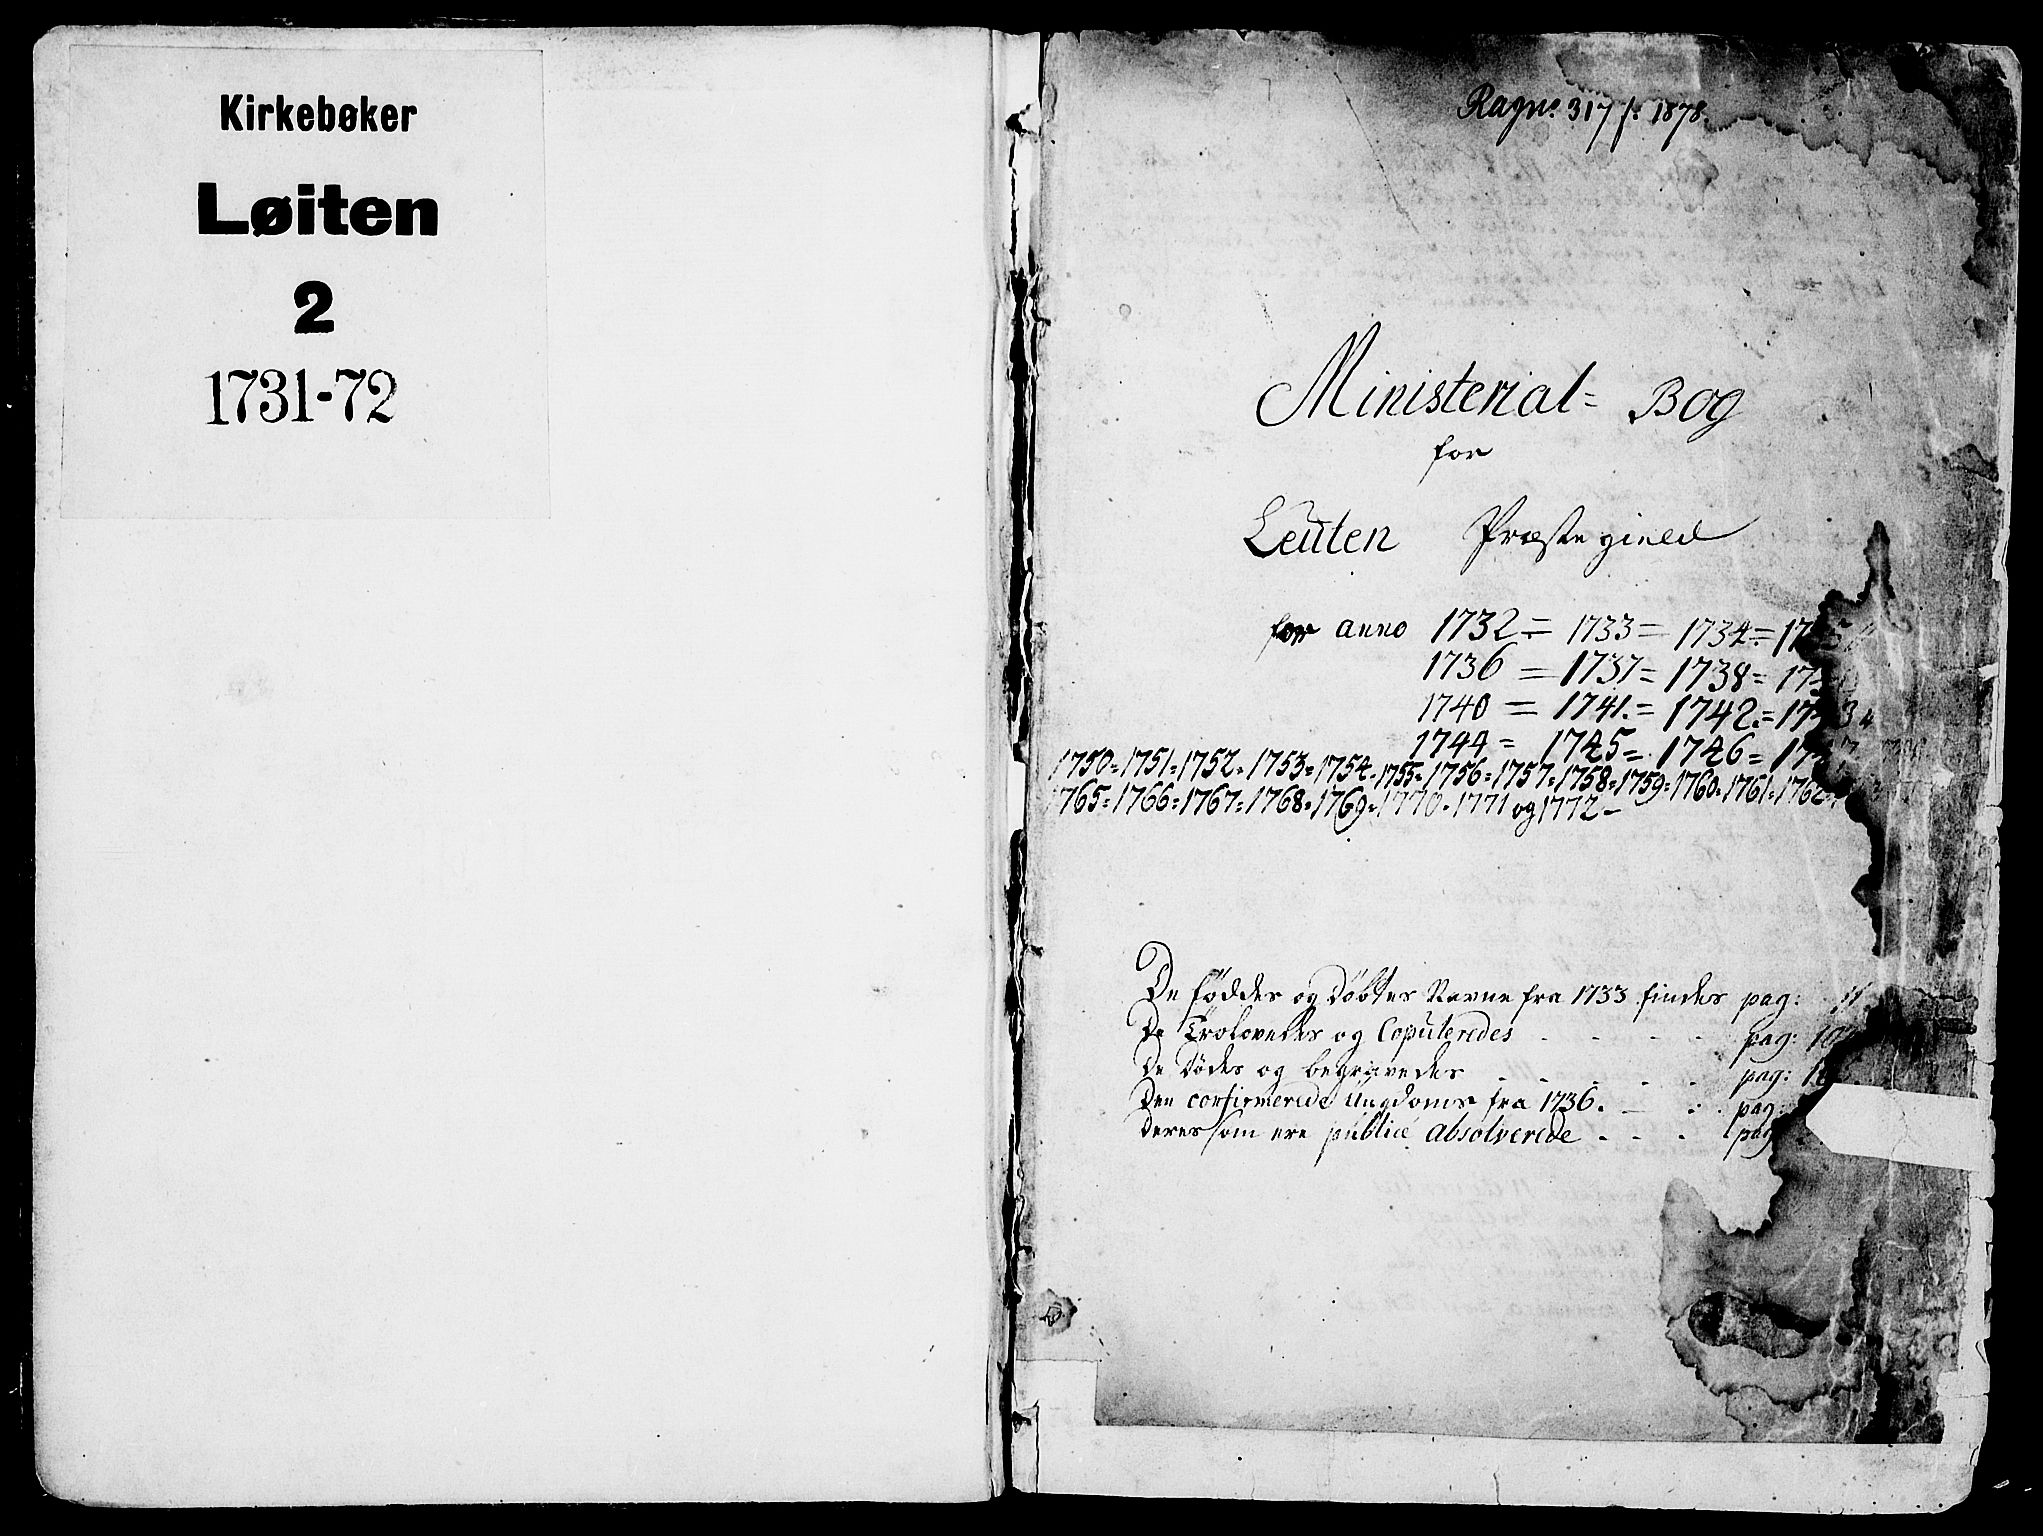 Kirkebøker
Løiten
2
1731-72
317 f: 1878.
Ministerial= Bog
for
Leuten Præstegield
for anno 1732 = 1733 = 1734 =
1736 = 1737 = 1738 =
1740 = 1741. = 1742. =
1744 = 1745 = 1746 =
1750=1751=1752=1753=1754=1755=1756=1757=1758=1759=1760=1761=1762=
1765=1766=1767=1768=1769=1770=1771 og 1772 –
De föddes og Döbtes Navne fra 1733 findes pag: 11
De Trolovedes og Copuleredes - - - - pag:
De Dödes og begravedes - - - - pag:
Den confirmerede Ungdoms fra 1736. - - - pag:
Deres som ere publicé absolverede - - - pag